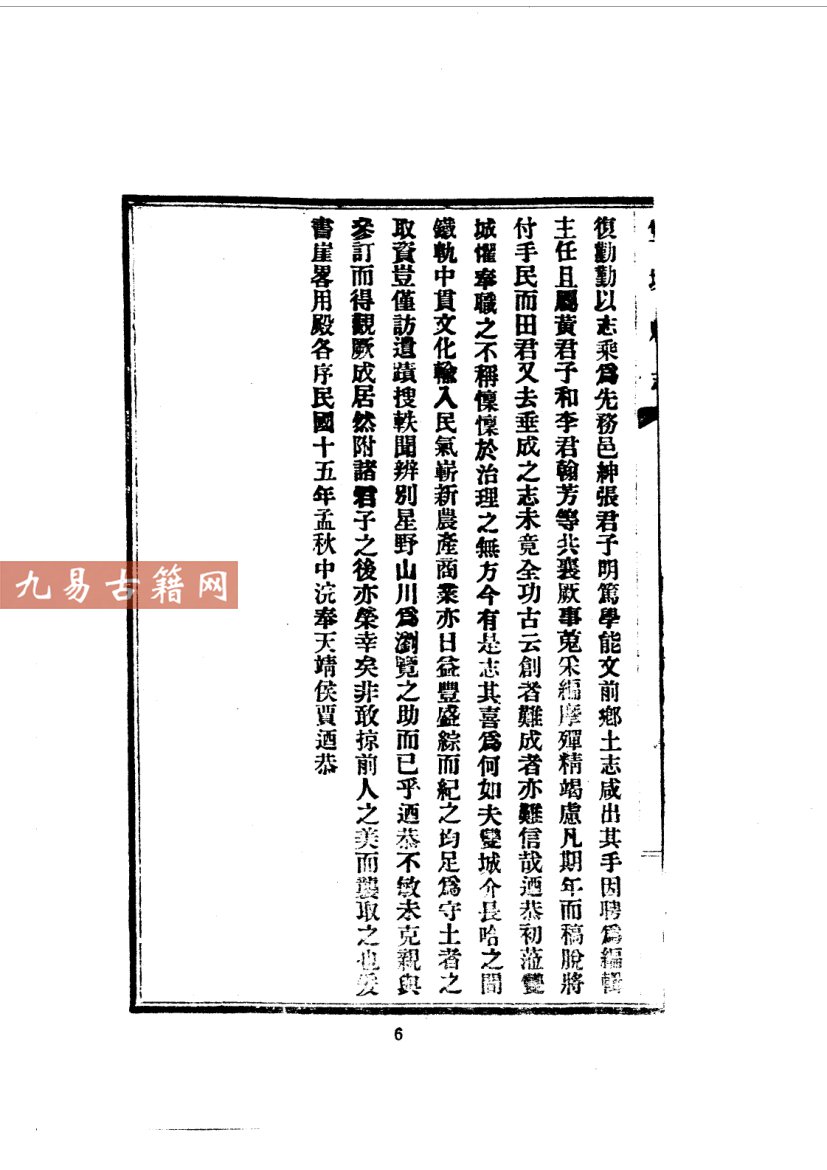 雙城縣志
復勸勸以志乘爲先務邑紳張君子明篤學能文前鄉土志咸出其手因聘爲編輯
主任且屬黃君子和李君翰芳等共襄厥事蒐采編摩殫精竭慮凡期年而稿脫將
付手民而田君又去垂成之志未竟全功古云創者難成者亦難信哉迺恭初蒞雙
城懼奉職之不稱懍懍於治理之無方今有是志其喜爲何如夫雙城介長哈之間
鐵軌中貫文化輸入民氣嶄新農產商業亦日益豐盛綜而紀之均足爲守土者之
取資豈僅訪遺蹟搜軼聞辨別星野山川爲瀏覽之助而已乎迺恭不敏未克親與
參訂而得觀厥成居然附諸君子之後亦榮幸矣非敢掠前人之美而襲取之也爰
書崖畧用殿各序民國十五年孟秋中浣奉天靖侯賈迺恭
九易古籍网
6